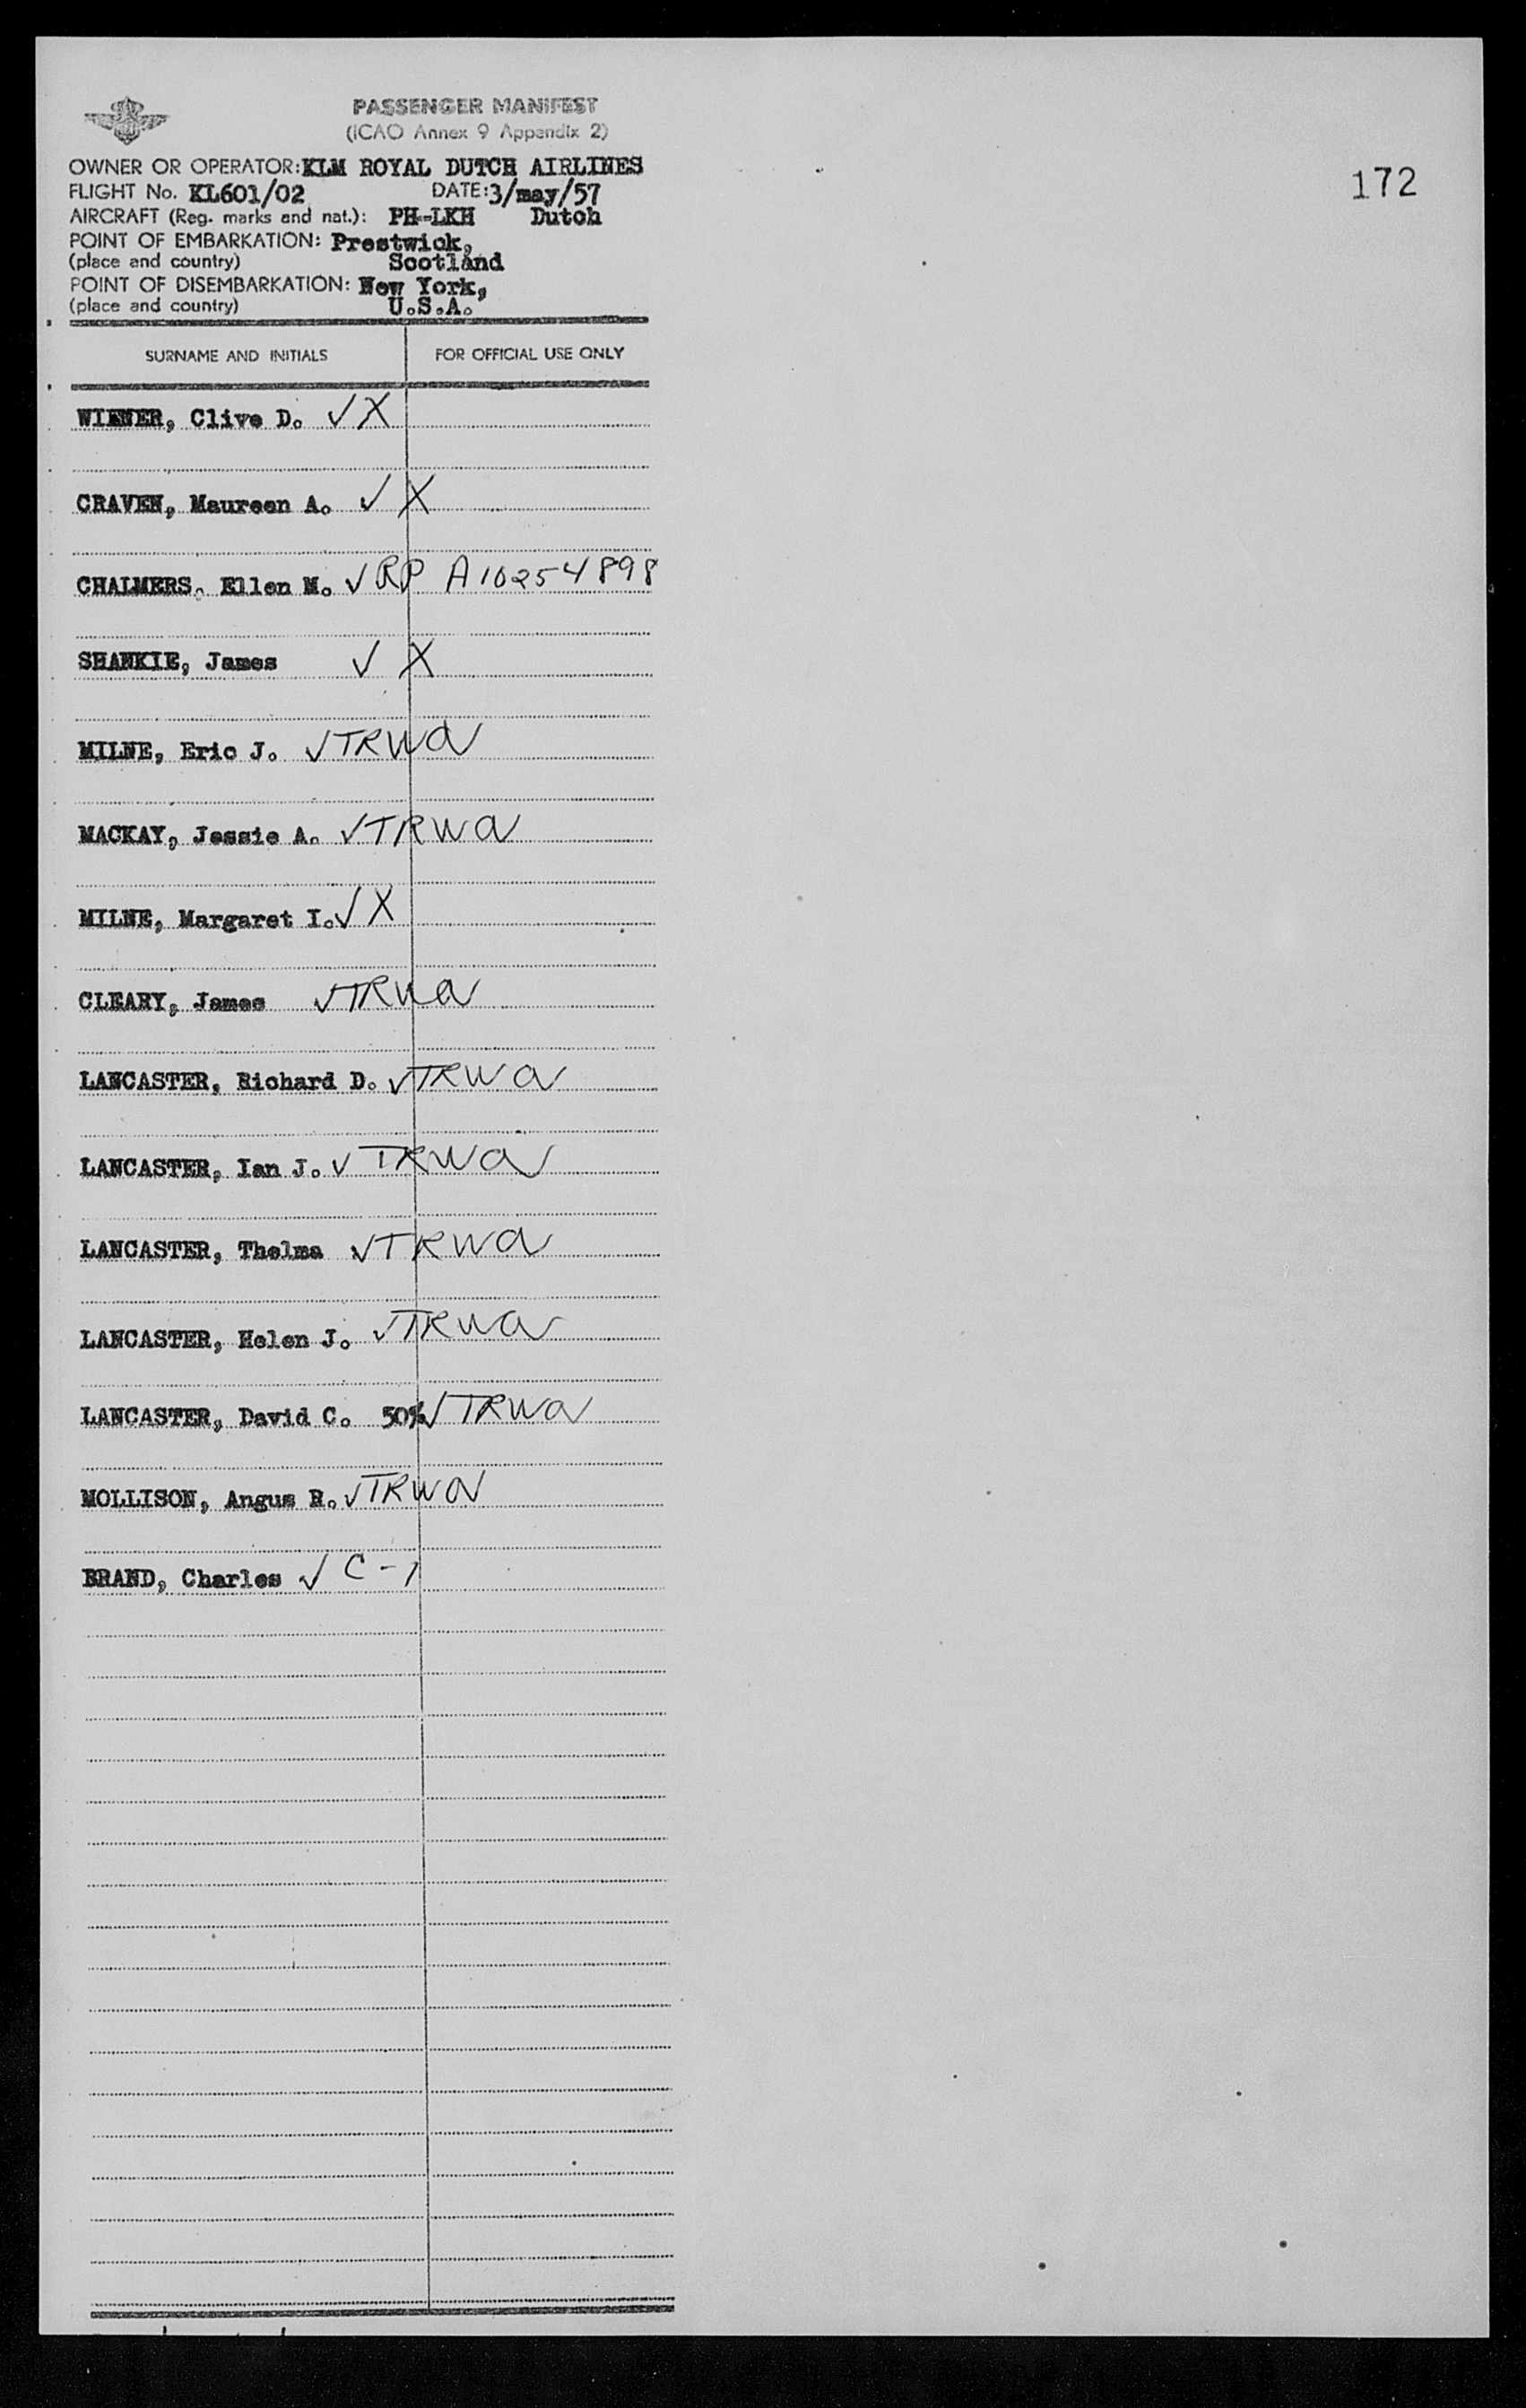 PASSENGER MANIFEST
(ICAO Annex 9 Appendix 2)
172
OWNER OR OPERATOR: KLM ROYAL DUTCH AIRLINES
FLIGHT No. KL601/02 DATE: 3/may/57
AIRCRAFT (Reg. marks and nat.): PH-LKH Dutch
POINT OF EMBARKATION: Prestwick,
(place and country) Scotland
POINT OF DISEMBARKATION: New York,
(place and country) U.S.A.
SURNAME AND INITIALS FOR OFFICIAL USE ONLY
WIENER, Clive D. ✓ X
CRAVEN, Maureen A. ✓ X
CHALMERS, Ellen M. ✓ RP A10254898
SHANKIE, James ✓ X
MILNE, Eric J. ✓ TRWA
MACKAY, Jessie A. ✓ TRWA
MILNE, Margaret I. ✓ X
CLEARY, James ✓ TRWA
LANCASTER, Richard D. ✓ TRWA
LANCASTER, Ian J. ✓ TRWA
LANCASTER, Thelma ✓ TRWA
LANCASTER, Helen J. ✓ TRWA
LANCASTER, David C. 50% ✓ TRWA
MOLLISON, Angus R. ✓ TRWA
BRAND, Charles ✓ C-1